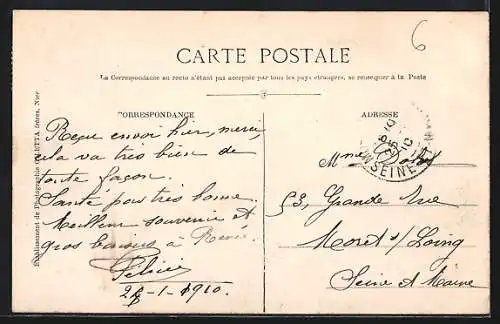 6
CARTE POSTALE
La Correspondance au recto n'étant pas acceptée par tous les pays étrangers, se renseigner à la Poste
CORRESPONDANCE
Reçu envoi hier, merci,
cela va très bien de
toute façon.
Santé pas très bonne.
Meilleur souvenir et
gros baisers à Renée.
Félicie
28-1-1910.
ADRESSE
Mme
53, Grande rue
Moret s/ Loing
Seine et Marne
SEINE
Etablissement de Photographie GILETTA frères, Nice